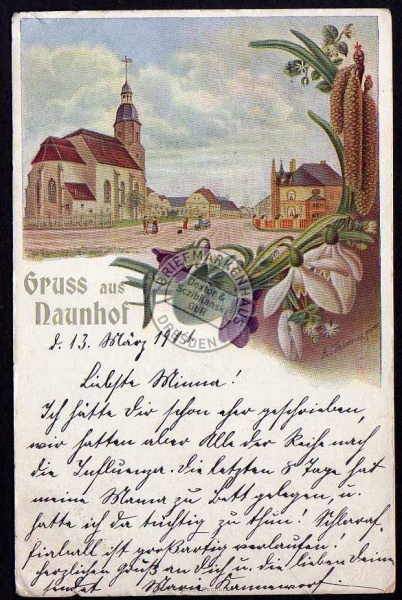 Gruss aus
Naunhof
BRIEFMARKENHAUS
Dextor &
Scribilansk
GbR
DRESDEN
d. 13. März 1911.
Liebste Minna!
Ich hätte Dir schon eher geschrieben,
wir hatten aber Alle der Reihe nach
die Influenza. Die letzten 8 Tage hat
meine Mama zu Bett gelegen, u.
hatte ich da tüchtig zu thun! Schlaraf-
fiaball ist großartig verlaufen!
herzlichen Gruß an Dich u. die lieben Deinen
sendet Marie Kanneworf.